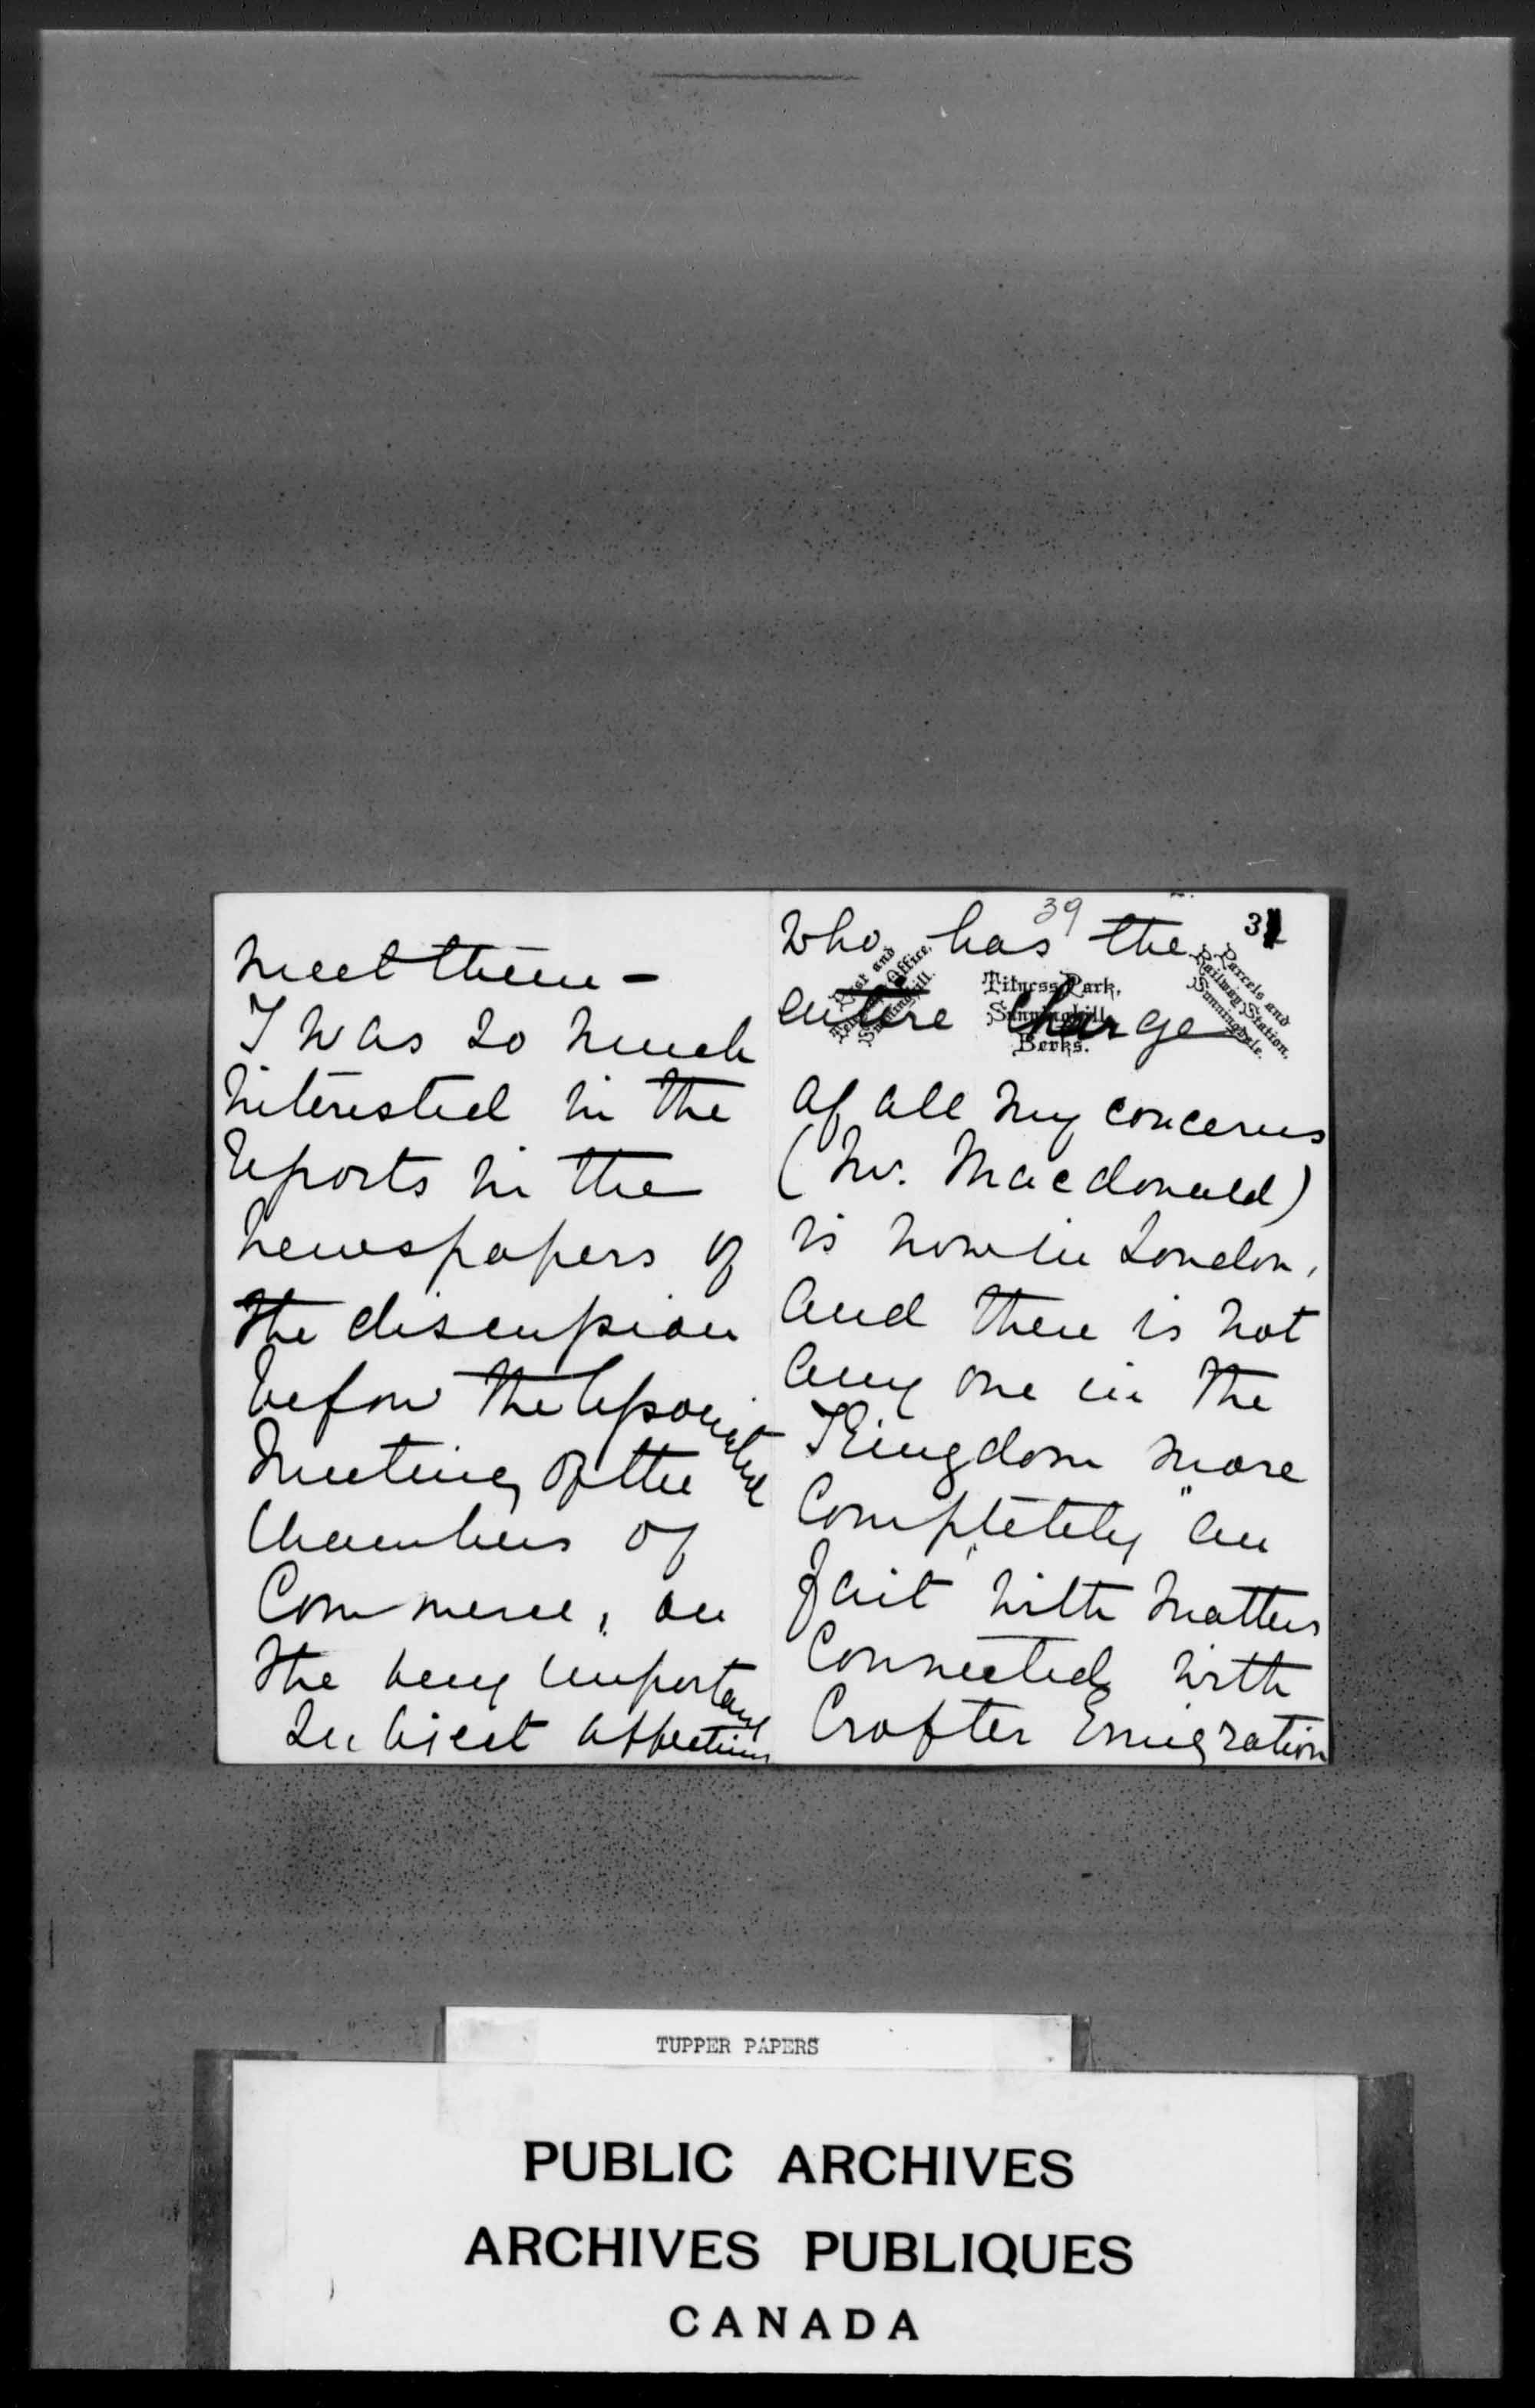 meet them -
I was so much
interested in the
reports in the
newspapers of
the discussion
before the Associated
Meeting of the
Chambers of
Commerce, on
the very important
subject affecting
39
31
who has the
Post and
Telegraph Office,
Sunninghill.
Titness Park,
Sunninghill,
Berks.
Parcels and
Railway Station,
Sunningdale.
entire charge
of all my concerns
(Mr. Macdonald)
is now in London,
and there is not
any one in the
Kingdom more
completely "au
fait" with matters
connected with
Crofter Emigration
TUPPER PAPERS
PUBLIC ARCHIVES
ARCHIVES PUBLIQUES
CANADA